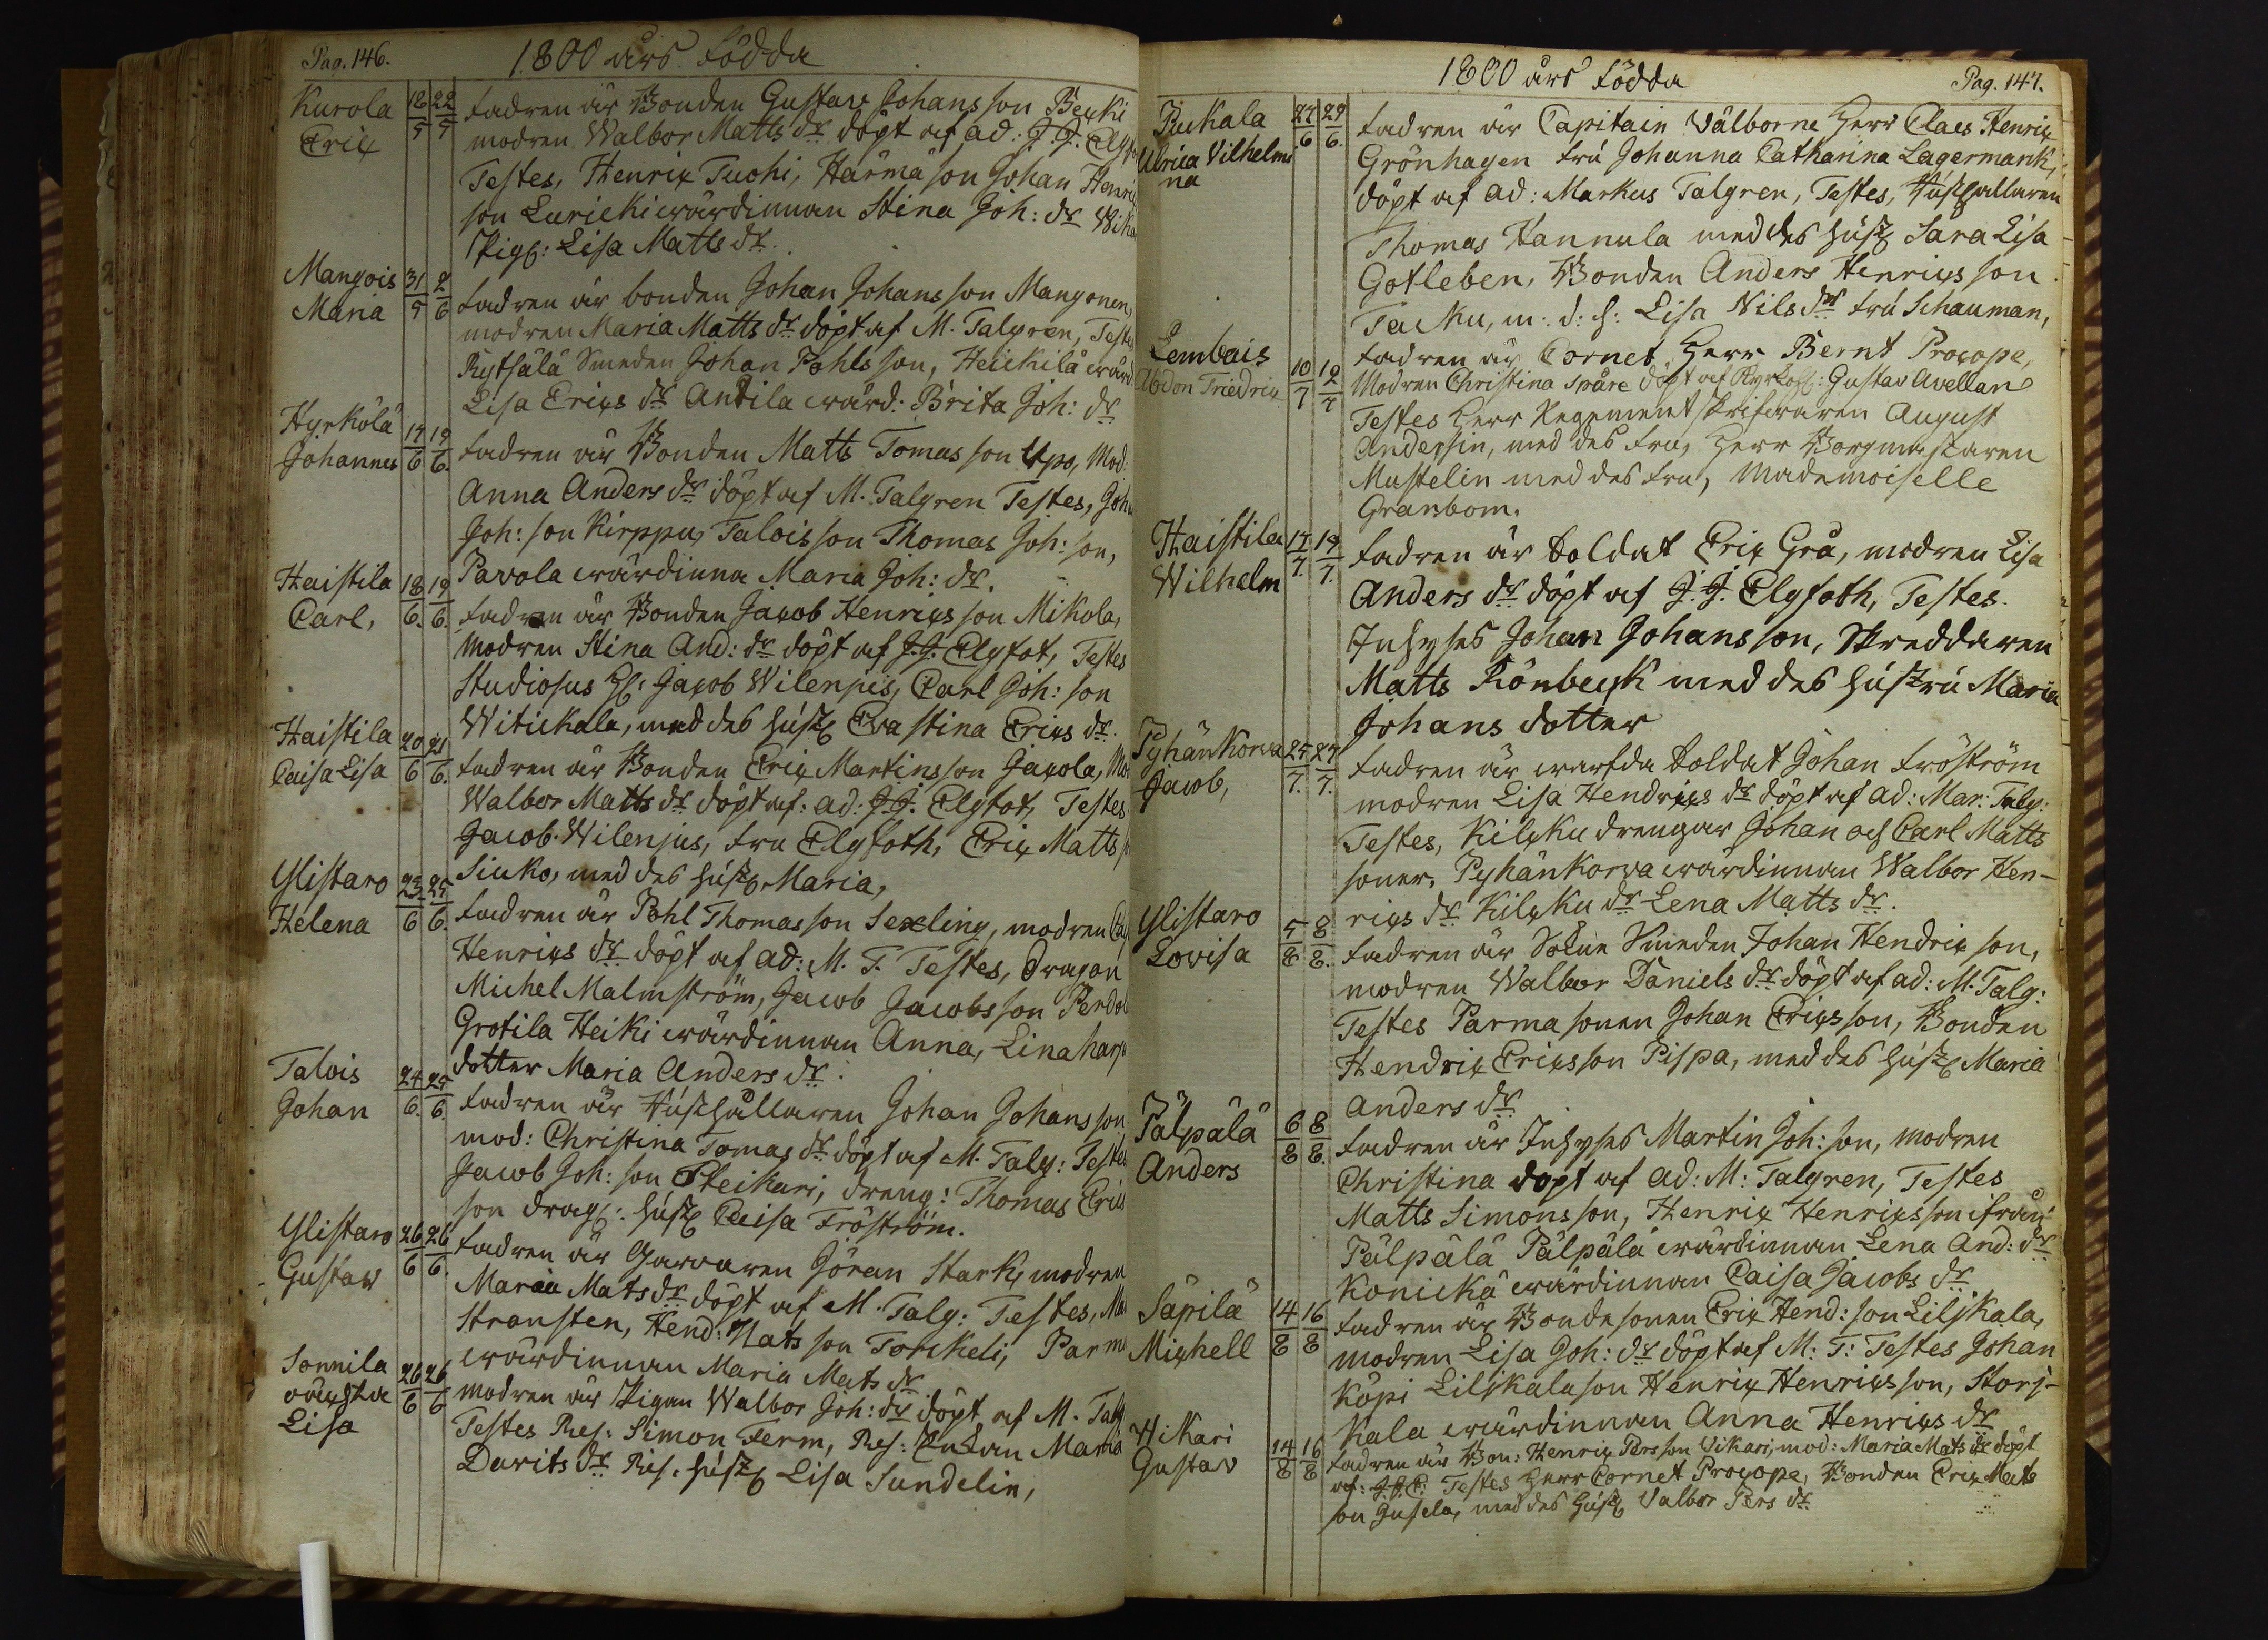 Pag. 146.
1800 års födda
Kurola 18/5 22/5 fadren är Bonden Gustav Johansson
Eric modren Walbor Matts dr döpt af ad: J. J. Elgf
Testes, Henrix Tuohi, Härmä son Johan Henrix
son Luricki wärdinnan Stina Joh: dr
Pig: Lisa Matts dr.
Mangois 31/5 2/6 fadren är bonden Johan Johansson Mangonen,
Maria modren Maria Matts dr döpt af M. Talgren, Testes
Rytsälä Smeden Johan Pohls son, Heickilä wärd
Lisa Erixs dr Antila wärd: Brita Joh: dr
Hyrkölä 17/6 19/6. fadren är Bonden Matts Tomas son Upo, Mod:
Johannes Anna Anders dr döpt af M. Talgren Testes, Joh
Joh: son Kirppu, Talois son Thomas Joh: son,
Pavola wärdinna Maria Joh: dr.
Haistila 18/6. 19/6. fadren är Bonden Jacob Henrixs son Mikola,
Carl, modren Stina And: dr döpt af J. J. Elgfot, Testes
Studiosus H: Jacob Wilenjus, Carl Joh: son
Witickala, med des hust Eva stina Erixs dr.
Haistila 20/6 21/6. fadren är Bonden Erix Martinsson Jacola, Mo
Caisa Lisa Walbor Matts dr döpt af: ad: J. J. Elgfot, Testes
Jacob Wilenjus, fru Elgfoth, Erix Matts
Siuko, med des hust Maria,
Ylistaro 23/6 25/6. fadren är Pohl Thomasson Sexling, modren Ca
Helena Henrixs dr döpt af ad: M. T. Testes, dragon
Michel Malmström, Jacob Jacobsson
Grotila Heiki wärdinnan Anna, Linaharj
dotter Maria Anders dr.
Talois 24/6. 25/6. fadren är Hushållaren Johan Johansson
Johan mod: Christina Tomas dr döpt af M. Talg: Testes
Jacob Joh: son Pleikari, dreng: Thomas Erics
son drag: hust Caisa Fröström.
Ylistaro 26/6 26/6. fadren är Garvaren Göran Stark, modren
Gustav Maria Mats dr döpt af M. Talg: Testes, Ma
Stransten, Hend: Mats son Torckeli, Parm
wärdinnan Maria Mats dr
Sonnila 26/6 26/6 modren är Pigan Walbor Joh: dr döpt af M. Talg
oäckta Testes Res: Simon Ferm, Res: Enkan Maria
Lisa Davits dr Res: hust Lisa Sundelin,
1800 års födda
Pag. 147.
Puckala 27/6 29/6. fadren är Capitain Välborne Herr Claes Henrix
Ulrica Vilhelmi Grönhagen fru Johanna Catharina Lagermarck,
na döpt af ad: Markus Talgren, Testes, Hushållaren
Thomas Hannula med des hust Sara Lisa
Gotleben, Bonden Anders Henrixs son
Tacku, m: d: h: Lisa Nils dr fru Schauman,
Lembais 10/7 12/7 fadren är Cornet Herr Bernt Procope,
Abdon Friedrix Modren Christina Spåre döpt af Kyrkoh: Gustav Avellan
Testes Herr Regementskrifwaren August
Andersin, med des fru, Herr Borgmästaren
Mustelin med des fru, Mademoiselle
Granbom.
Haistila 17/7. 19/7. fadren är Soldat Erix Grå, modren Lisa
Wilhelm Anders dr döpt af J. J. Elgfoth, Testes.
Inhyses Johan Johansson, Skreddaren
Matts Rönbeck med des hustru Maria
Johans dotter
Pyhänkorva 25/7. 27/7. fadren är warfda Soldat Johan Fröström
Jacob, modren Lisa Hendrixs dr döpt af ad: Mar: Talg:
Testes, Kilxku drengar Johan och Carl Matts
soner, Pyhänkorva wärdinnan Walbor Hen-
rixs dr Kilxku dr Lena Matts dr.
Ylistaro 5/8 8/8. fadren är Sockne Smeden Johan Hendrix son,
Lovisa modren Walbor Daniels dr döpt af ad: M. Talg:
Testes Parma sonen Johan Erixs son, Bonden
Hendrix Erixsson Pispa, med des hust Maria
Anders dr
Pälpälä 6/8 8/8. fadren är Inhyses Martin Joh: son, modren
Anders Christina döpt af ad: M: Talgren, Testes
Matts Simonsson, Henrix Henrixsson ifrån
Pälpälä Pälpälä wärdinnan Lena And: dr
Konickä wärdinnan Caisa Jacobs dr
Säpilä 14/8 16/8 fadren är Bondesonen Erix Hend: son Liljkala,
Mixhell modren Lisa Joh: dr döpt af M: T: Testes Johan
Köpi Liljkala son Henrix Henrixsson, Storj-
kala wärdinnan Anna Henrixs dr
Wikari 14/8 16/8 fadren är Bon: Henrix Persson Vikari, mod: Maria Mats dr döpt
Gustav af: J. J. E: Testes Herr Cornet Procope, Bonden Erix Mats
son Jusela, med des hust Valbor Pers dr